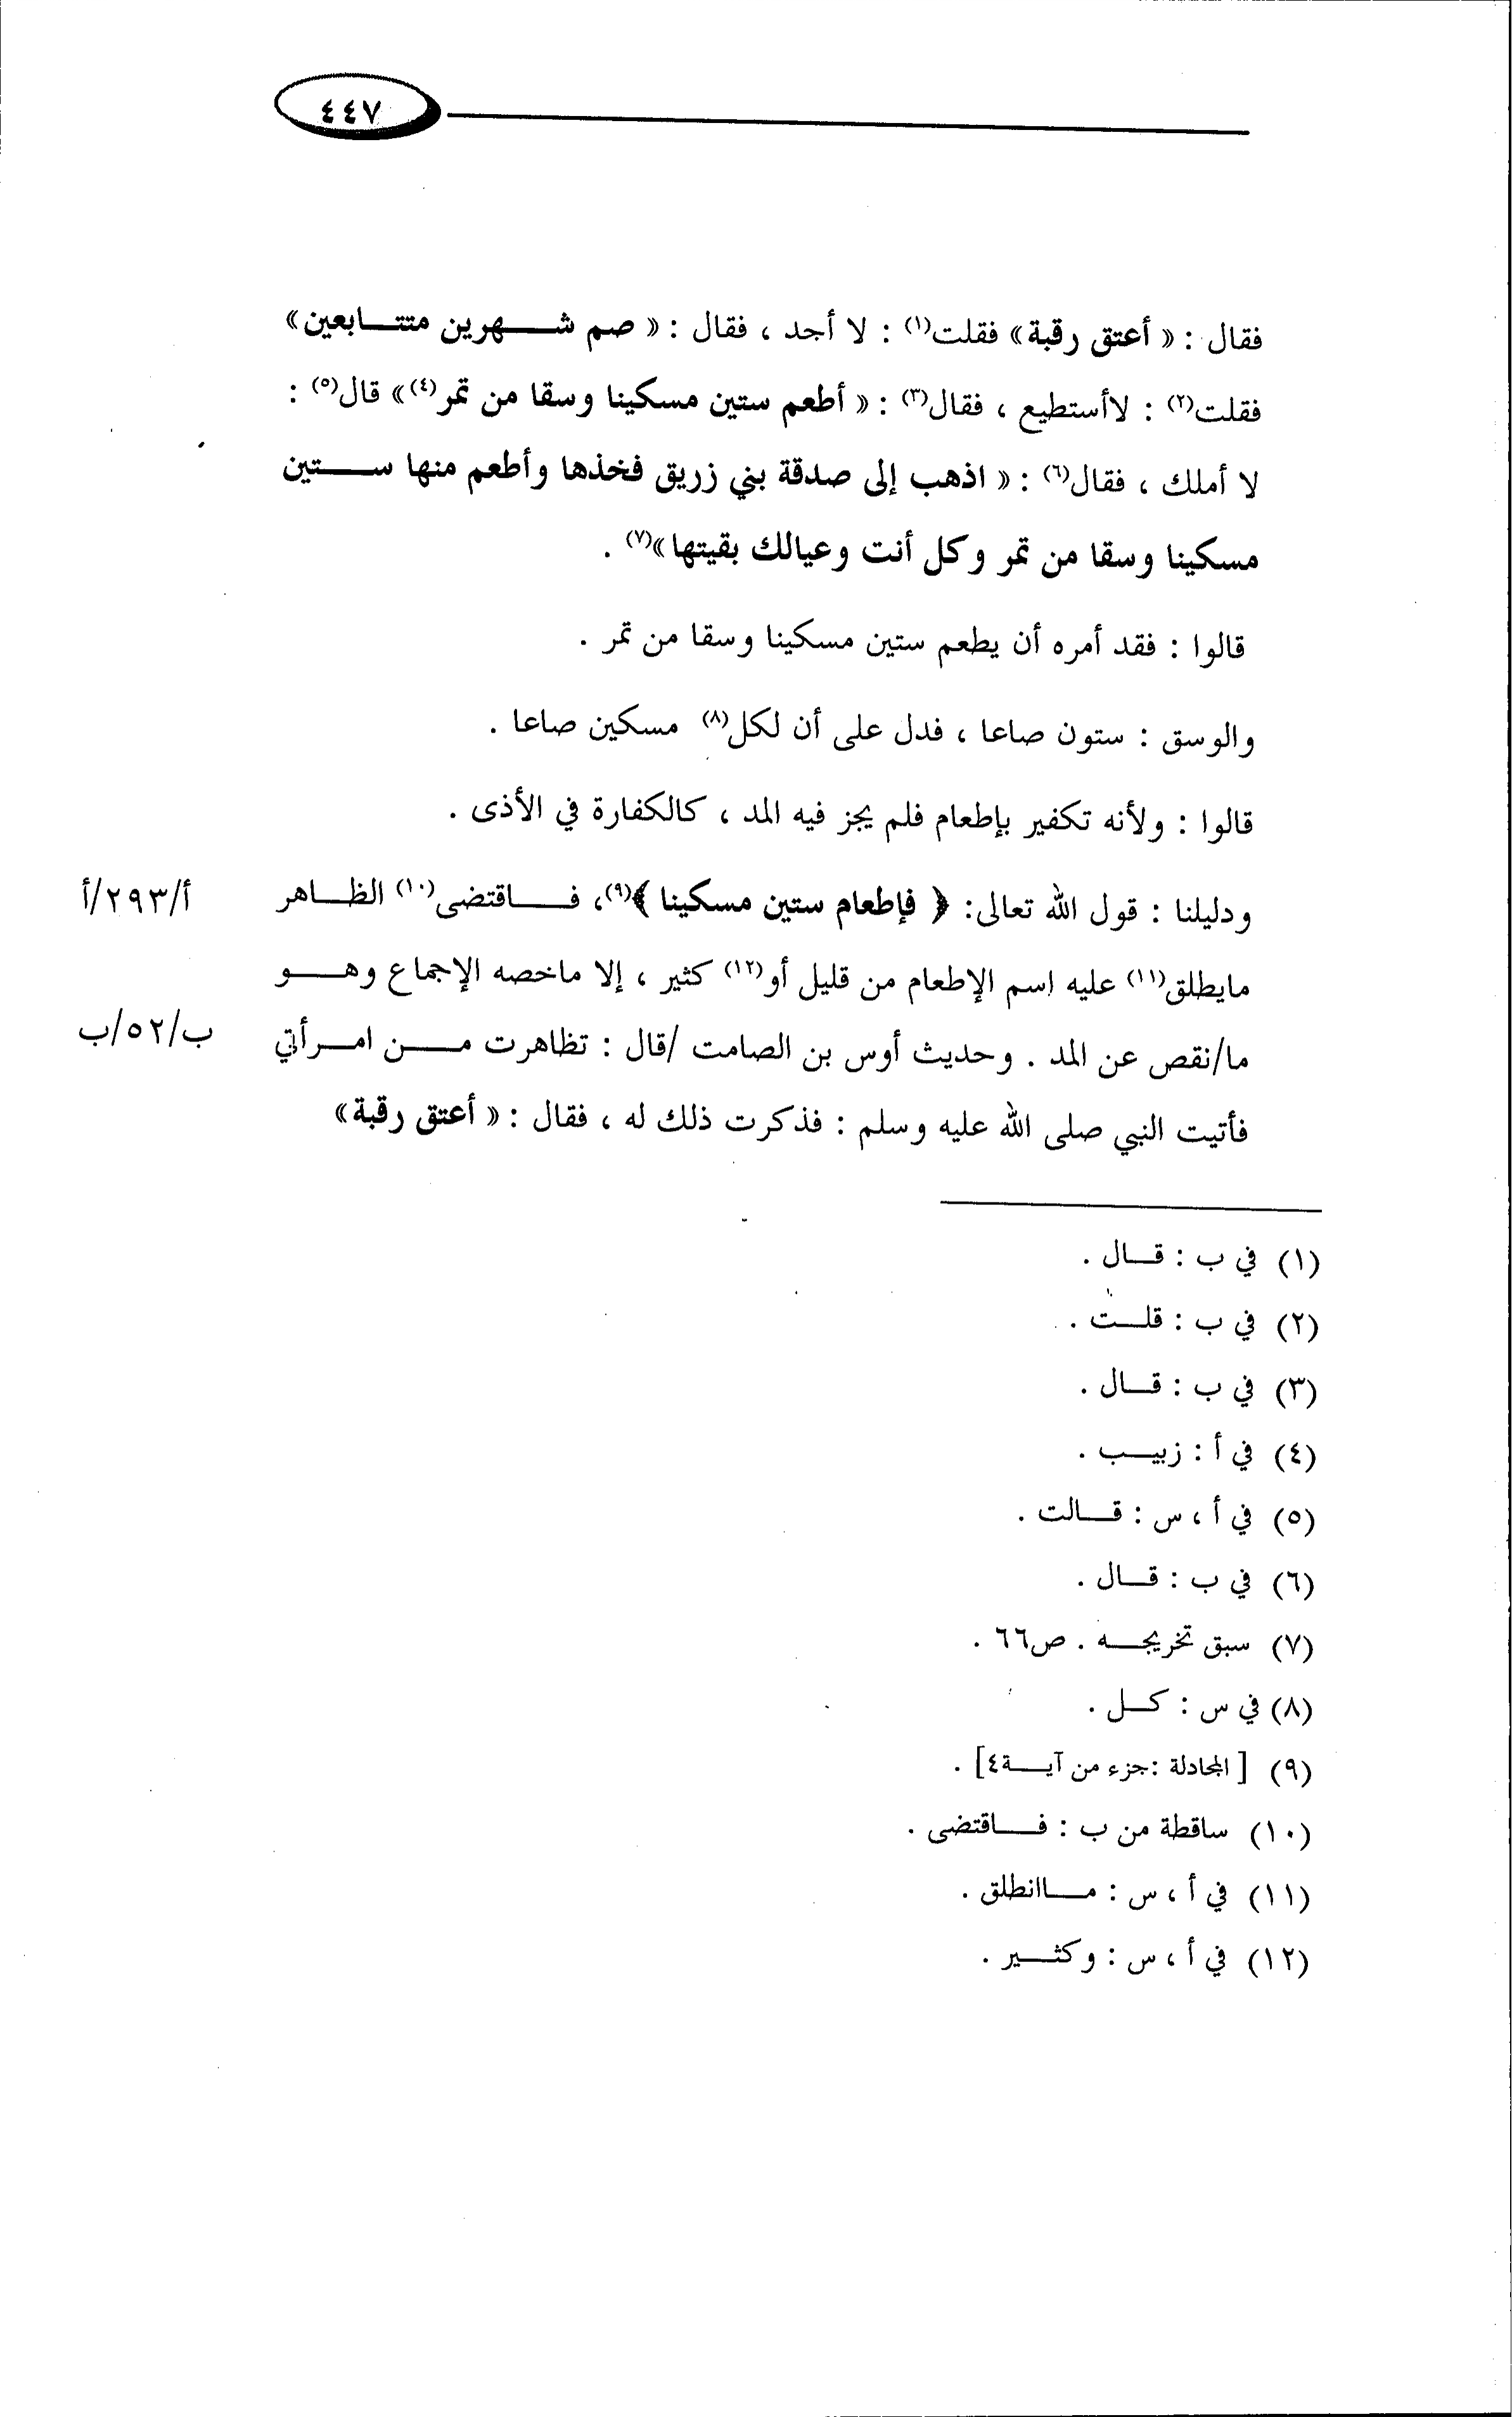 ٤٤٧
فقال : « أعتق رقبة» فقلت(١) : لا أجد ، فقال : « صم شهرين متتابعين»
فقلت(٢) : لاأستطيع ، فقال(٣) : « أطعم ستين مسكينا وسقا من تمر(٤)» قال(٥) :
لا أملك ، فقال(٦) : « اذهب إلى صدقة بني زريق فخذها وأطعم منها ستين
مسكينا وسقا من تمر وكل أنت وعيالك بقيتها»(٧) .
قالوا : فقد أمره أن يطعم ستين مسكينا وسقا من تمر .
والوسق : ستون صاعا ، فدل على أن لكل(٨) مسكين صاعا .
قالوا : ولأنه تكفير بإطعام فلم يجز فيه المد ، كالكفارة في الأذى .
ودليلنا : قول الله تعالى: ﴿ فإطعام ستين مسكينا ﴾(٩)، فاقتضى(١٠) الظاهر أ/٢٩٣/أ
مايطلق(١١) عليه اسم الإطعام من قليل أو(١٢) كثير ، إلا ماخصه الإجماع وهو
ما/نقص عن المد . وحديث أوس بن الصامت /قال : تظاهرت من امرأتي ب/٥٢/ب
فأتيت النبي صلى الله عليه وسلم : فذكرت ذلك له ، فقال : « أعتق رقبة»
(١) في ب : قال .
(٢) في ب : قلت .
(٣) في ب : قال .
(٤) في أ : زبيب .
(٥) في أ ، س : قالت .
(٦) في ب : قال .
(٧) سبق تخريجه . ص٦٦ .
(٨) في س : كل .
(٩) [ المجادلة :جزء من آية٤] .
(١٠) ساقطة من ب : فاقتضى .
(١١) في أ ، س : ماانطلق .
(١٢) في أ ، س : وكثير .